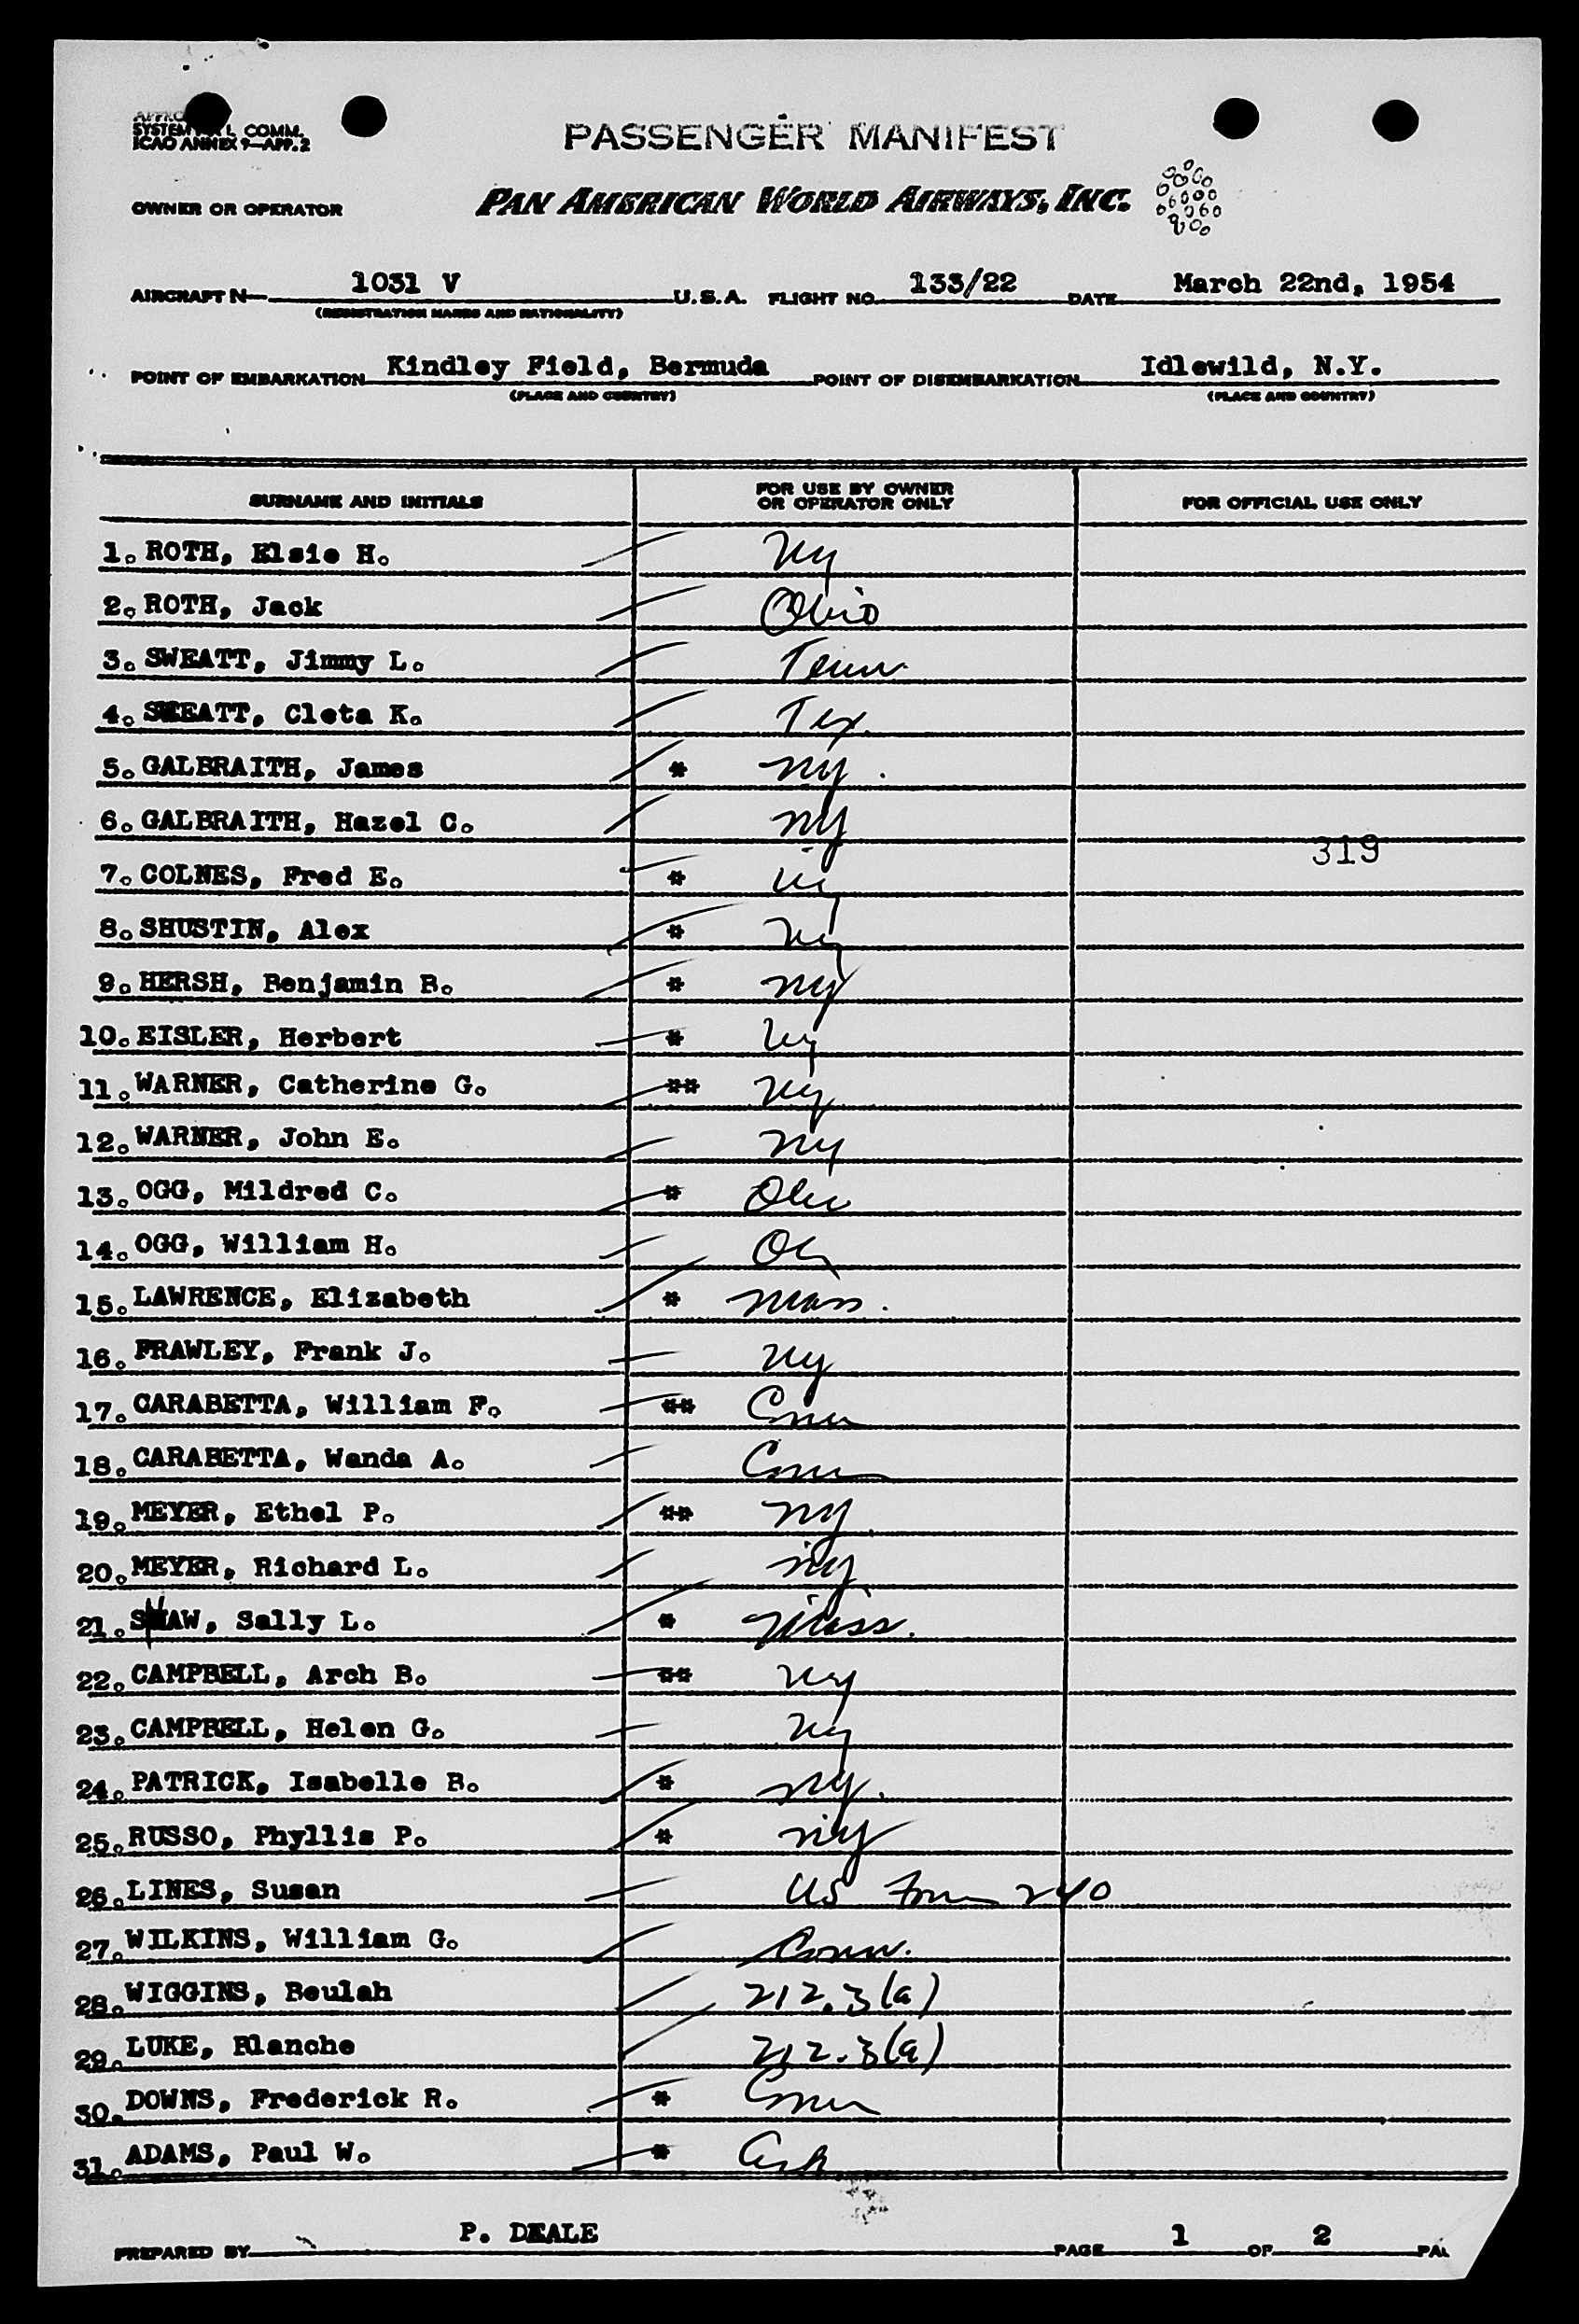 SYSTEM COMM.
ICAO ANNEX 9—APP. 2
PASSENGER MANIFEST
OWNER OR OPERATOR PAN AMERICAN WORLD AIRWAYS, INC.
AIRCRAFT N— 1031 V U.S.A. FLIGHT NO. 133/22 DATE March 22nd, 1954
(REGISTRATION MARKS AND NATIONALITY)
POINT OF EMBARKATION Kindley Field, Bermuda POINT OF DISEMBARKATION Idlewild, N.Y.
(PLACE AND COUNTRY) (PLACE AND COUNTRY)
SURNAME AND INITIALS FOR USE BY OWNER OR OPERATOR ONLY FOR OFFICIAL USE ONLY
1. ROTH, Elsie H. Ny
2. ROTH, Jack Ohio
3. SWEATT, Jimmy L. Tenn
4. SWEATT, Cleta K. Tex.
5. GALBRAITH, James * Ny.
6. GALBRAITH, Hazel C. Ny
319
7. COLNES, Fred E. * Ny
8. SHUSTIN, Alex * Ny
9. HERSH, Benjamin B. * Ny
10. EISLER, Herbert * Ny
11. WARNER, Catherine G. ** Ny
12. WARNER, John E. Ny
13. OGG, Mildred C. *
14. OGG, William H.
15. LAWRENCE, Elizabeth * Mass.
16. FRAWLEY, Frank J. Ny
17. CARABETTA, William F. ** Conn
18. CARABETTA, Wanda A. Conn
19. MEYER, Ethel P. ** Ny
20. MEYER, Richard L. Ny
21. SHAW, Sally L. * Miss.
22. CAMPBELL, Arch B. ** Ny
23. CAMPBELL, Helen G. Ny
24. PATRICK, Isabelle B. * Ny.
25. RUSSO, Phyllis P. * Ny
26. LINES, Susan US Form 240
27. WILKINS, William G. Conn.
28. WIGGINS, Beulah 212.3(a)
29. LUKE, Blanche 212.3(a)
30. DOWNS, Frederick R. * Conn
31. ADAMS, Paul W. *
PREPARED BY P. DEALE PAGE 1 OF 2